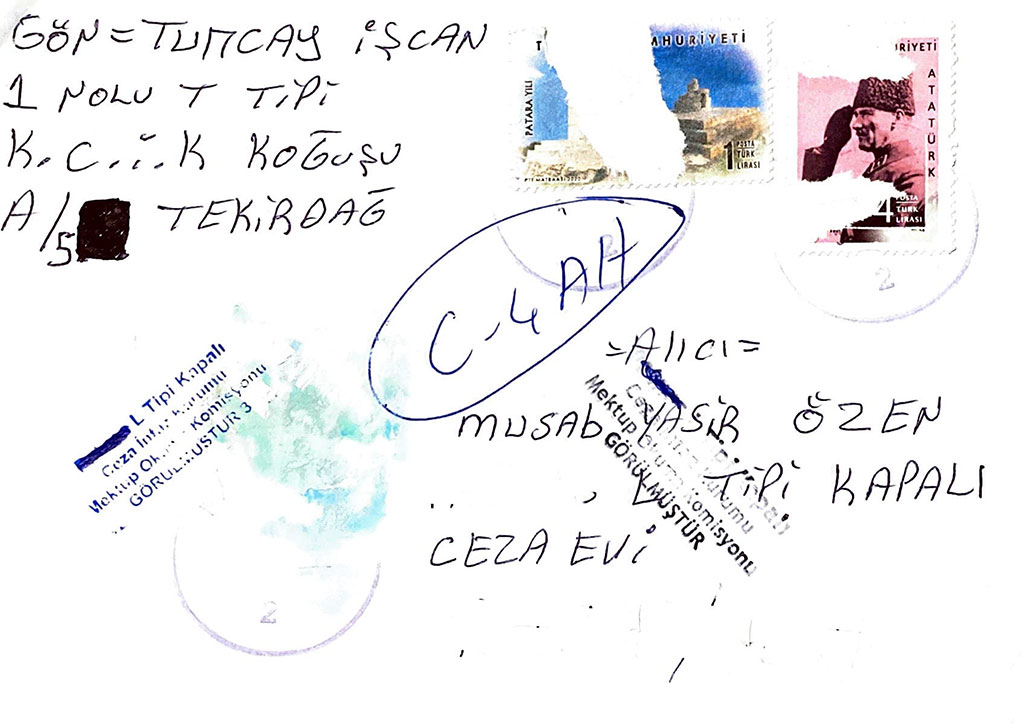 GÖN = TUNCAY İŞCAN
1 NOLU T TİPİ
K.C.İ.K KOĞUŞU
A/5 TEKİRDAĞ
MHURİYETİ
PATARA YILI
1 POSTA
TÜRK
LİRASI
RİYETİ
ATATÜRK
4 POSTA
TÜRK
LİRASI
2
2
C-4 Alt
=Alıcı=
MUSAB YASİR ÖZEN
L TİPİ KAPALI
CEZA EVİ
L Tipi Kapalı
Ceza İnfaz Kurumu
Mektup Okuma Komisyonu
GÖRÜLMÜŞTÜR 3
Mektup Okuma Komisyonu
GÖRÜLMÜŞTÜR
2